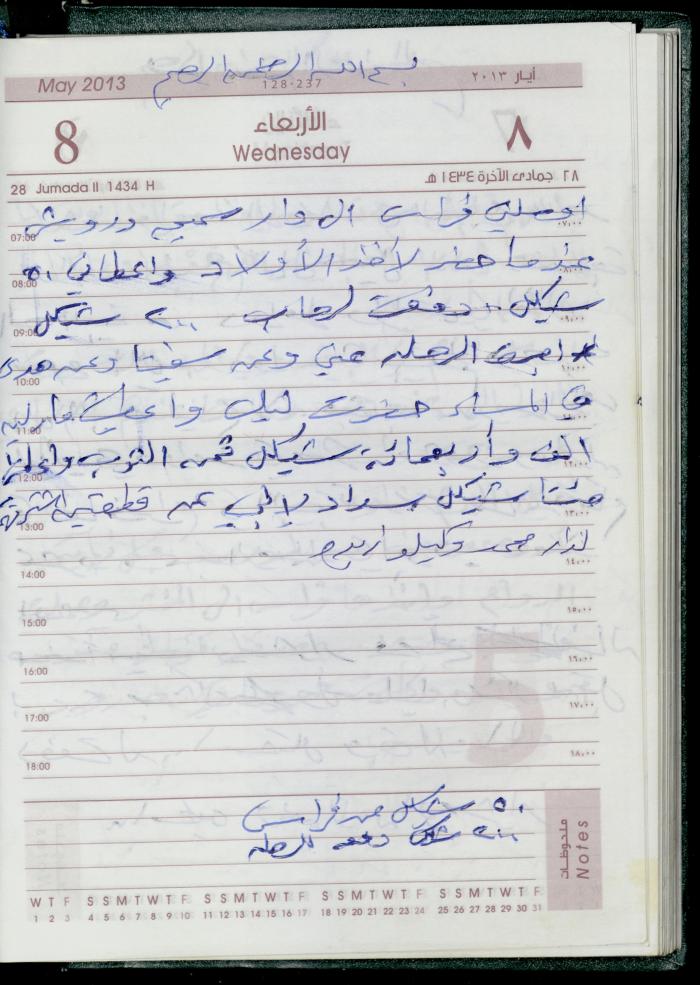 بسم الله الرحمن الرحيم
May 2013
128-237
أيار ٢٠١٣
8
الأربعاء
Wednesday
٨
28 Jumada II 1434 H
٢٨ جمادى الآخرة ١٤٣٤ هـ
اوصلني فراس الدوار سميح درويش
07:00 ٠٧,٠٠
عندما حضر لأخذ الأولاد واعطاني ٥٠
08:00 ٠٨,٠٠
شيكل دفعت لرحاب ٢٠٠ شيكل
09:00 ٠٩,٠٠
الرحله عني وعن سفيتا وعن هدى
10:00 ١٠,٠٠
في المساء حضرت ليلى واعطيت
11:00 ١١,٠٠
الف وأربعمائة شيكل ثمن الثوب
12:00 ١٢,٠٠
مئتا شيكل سداد لإلي عن قطعتين
13:00 ١٣,٠٠
وكيلو
14:00 ١٤,٠٠
15:00 ١٥,٠٠
16:00 ١٦,٠٠
17:00 ١٧,٠٠
18:00 ١٨,٠٠
٥٠ شيكل من فراس
٢٠٠ شيكل دفعه للرحله
ملحوظات
Notes
W T F S S M T W T F S S M T W T F S S M T W T F S S M T W T F
1 2 3 4 5 6 7 8 9 10 11 12 13 14 15 16 17 18 19 20 21 22 23 24 25 26 27 28 29 30 31